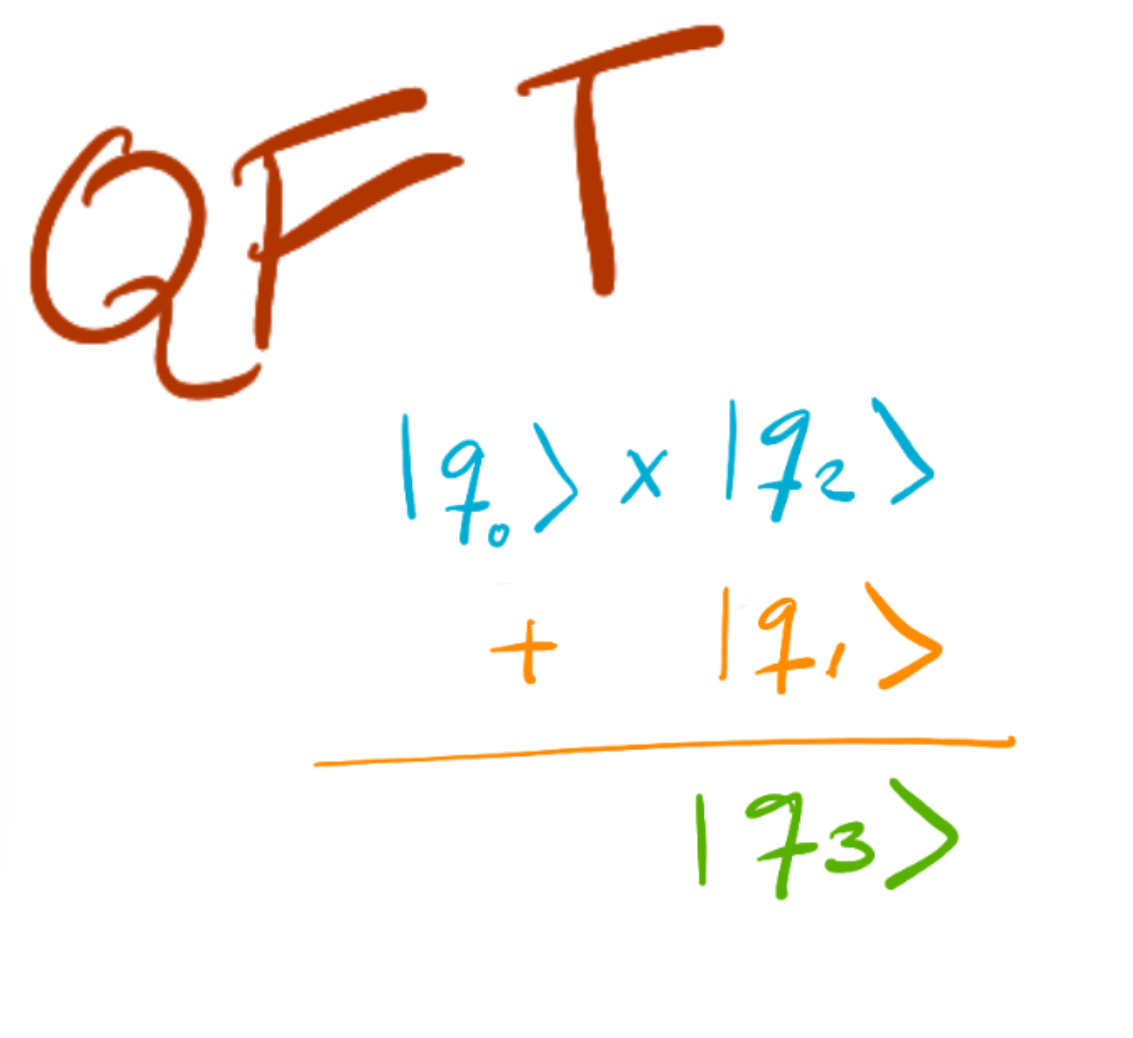 QFT
|q₀⟩ × |q₂⟩
+ |q₁⟩
|q₃⟩